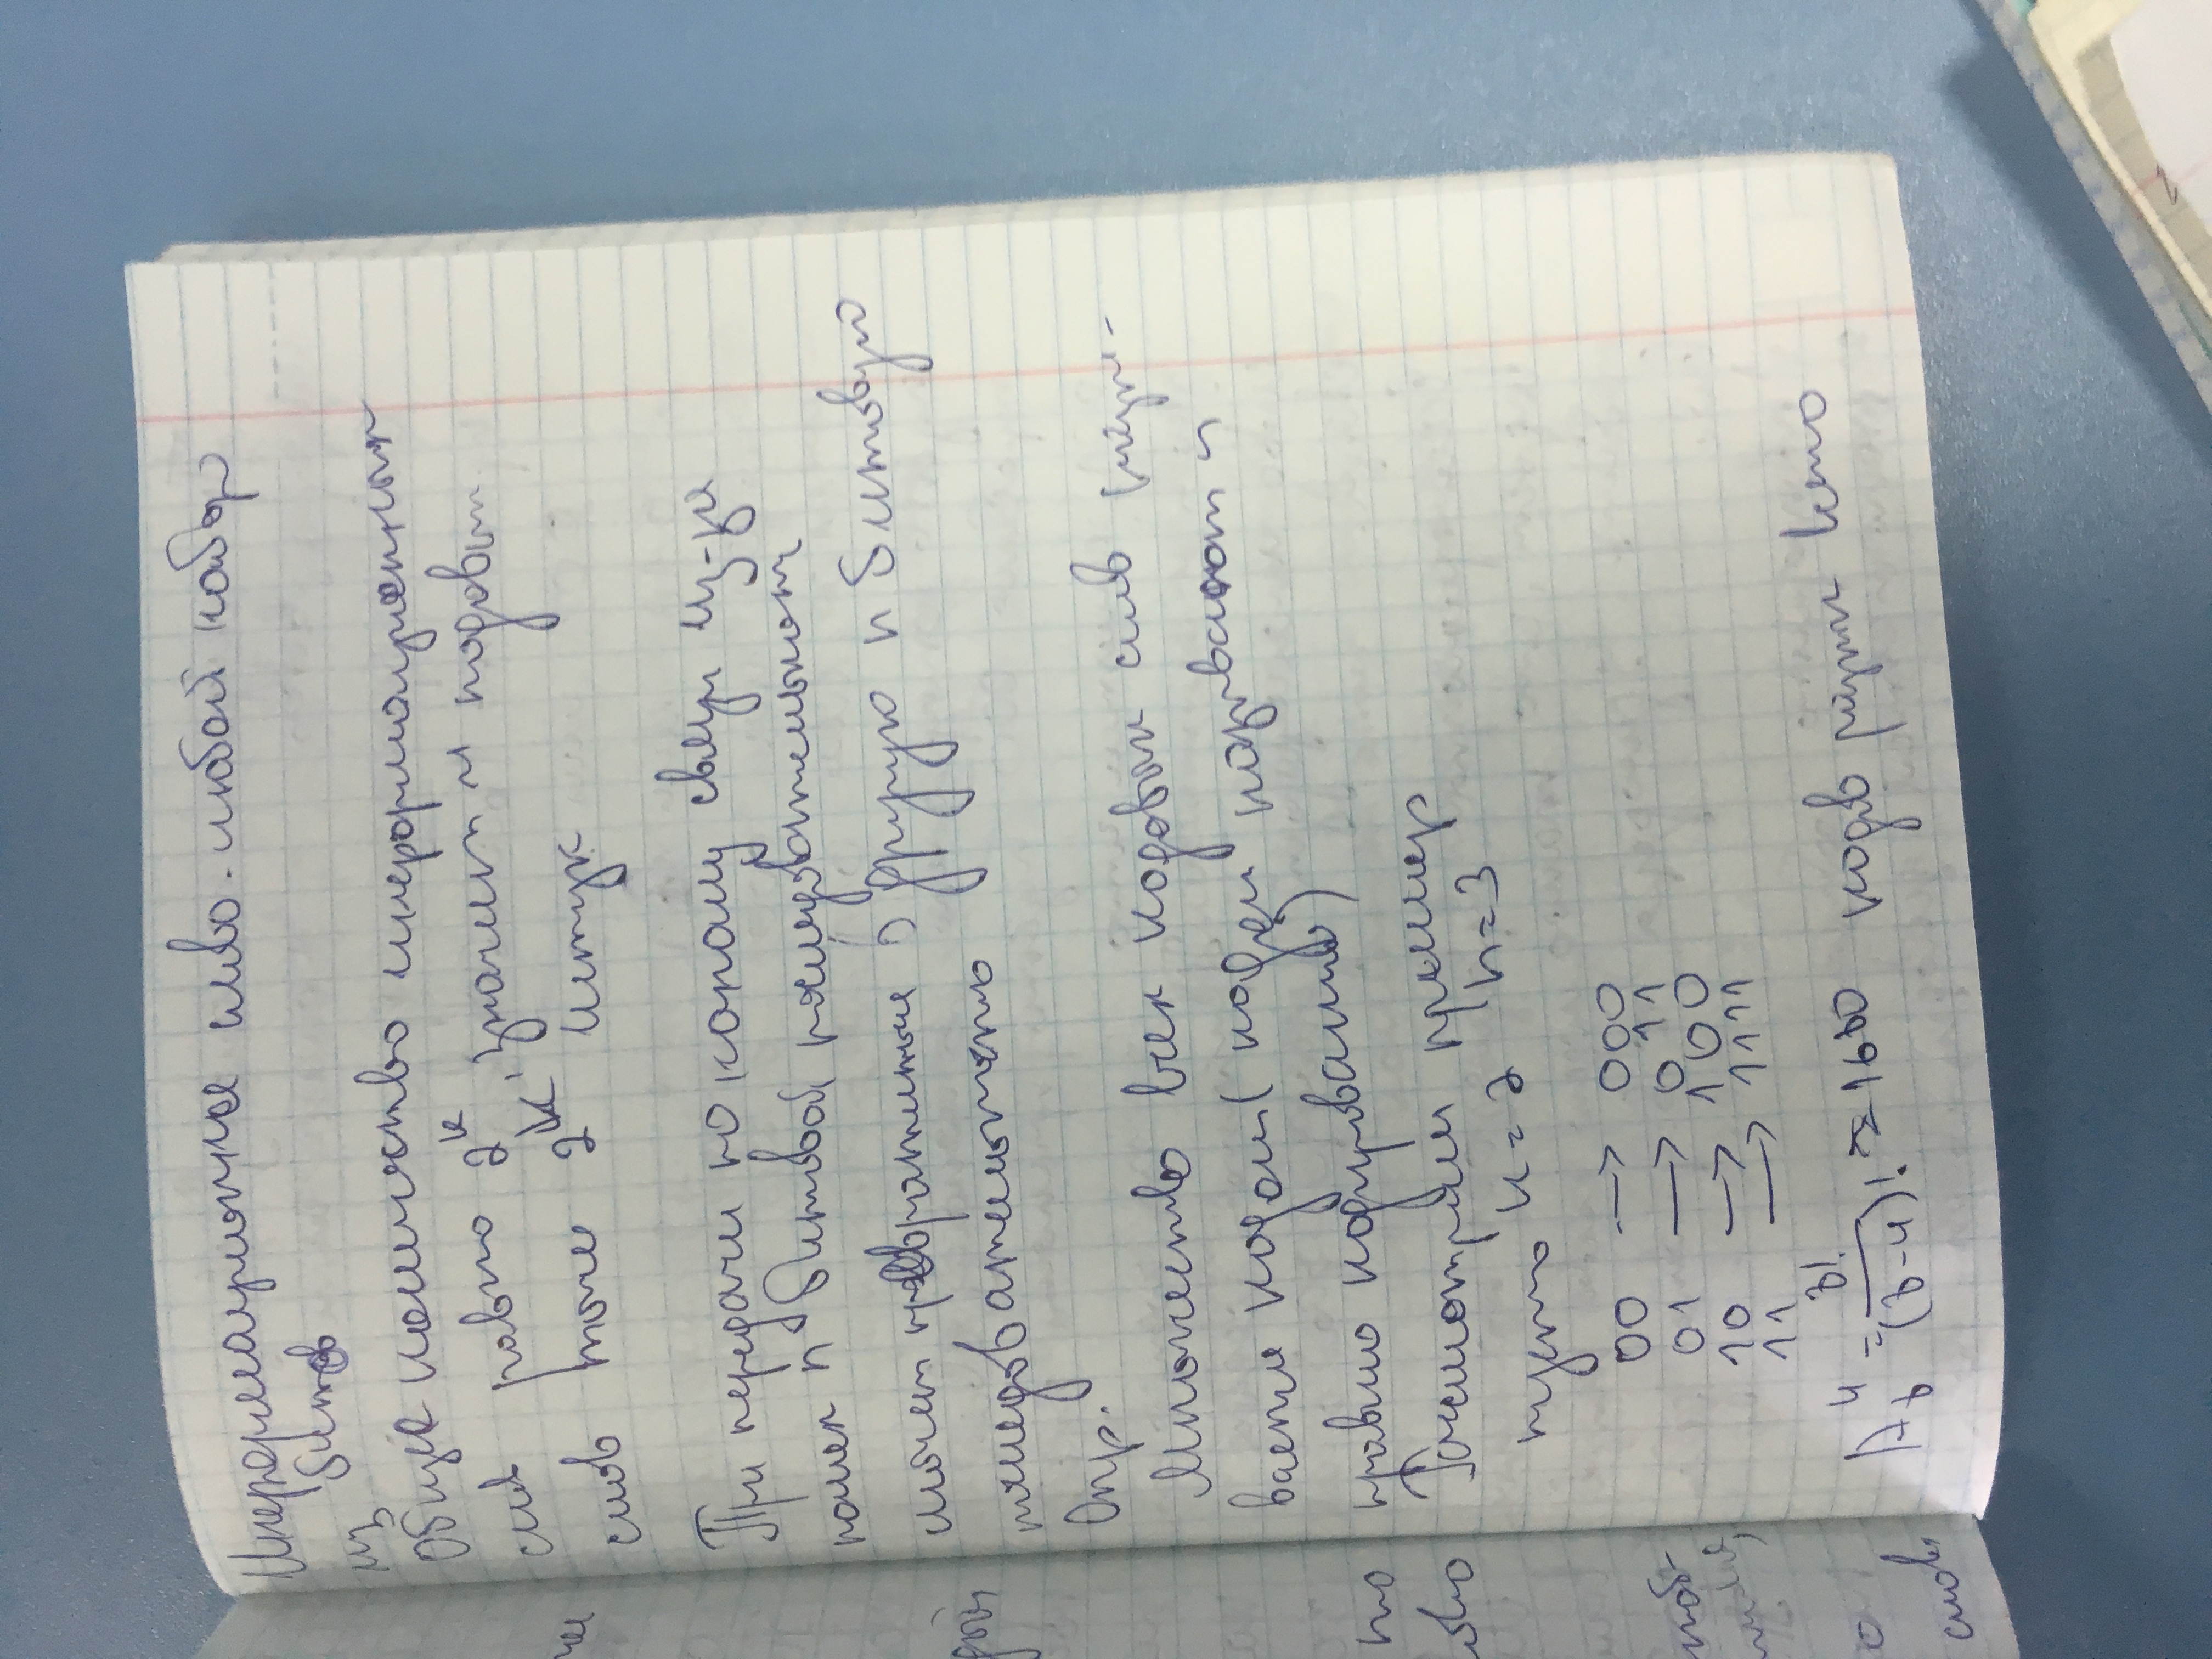 че
дой,
то
ово
о
слов,
Информационное слово - любой набор
из битов
Общее количество информационных
слов равно 2^k, значит и кодовых
слов тоже 2^k штук
При передачи по каналу связи из-за
помех n битовой последовательности
может превратиться в другую n битовую
последовательность
Опр.
Множество всех кодовых слов назы-
вается кодом (кодом называют и
правило кодирования)
Рассмотрим пример
пусть k = 2 n = 3
00 → 000
01 → 011
10 → 100
11 → 1111
A_8^4 = 8!/(8-4)! ≈ 1680 кодов разных